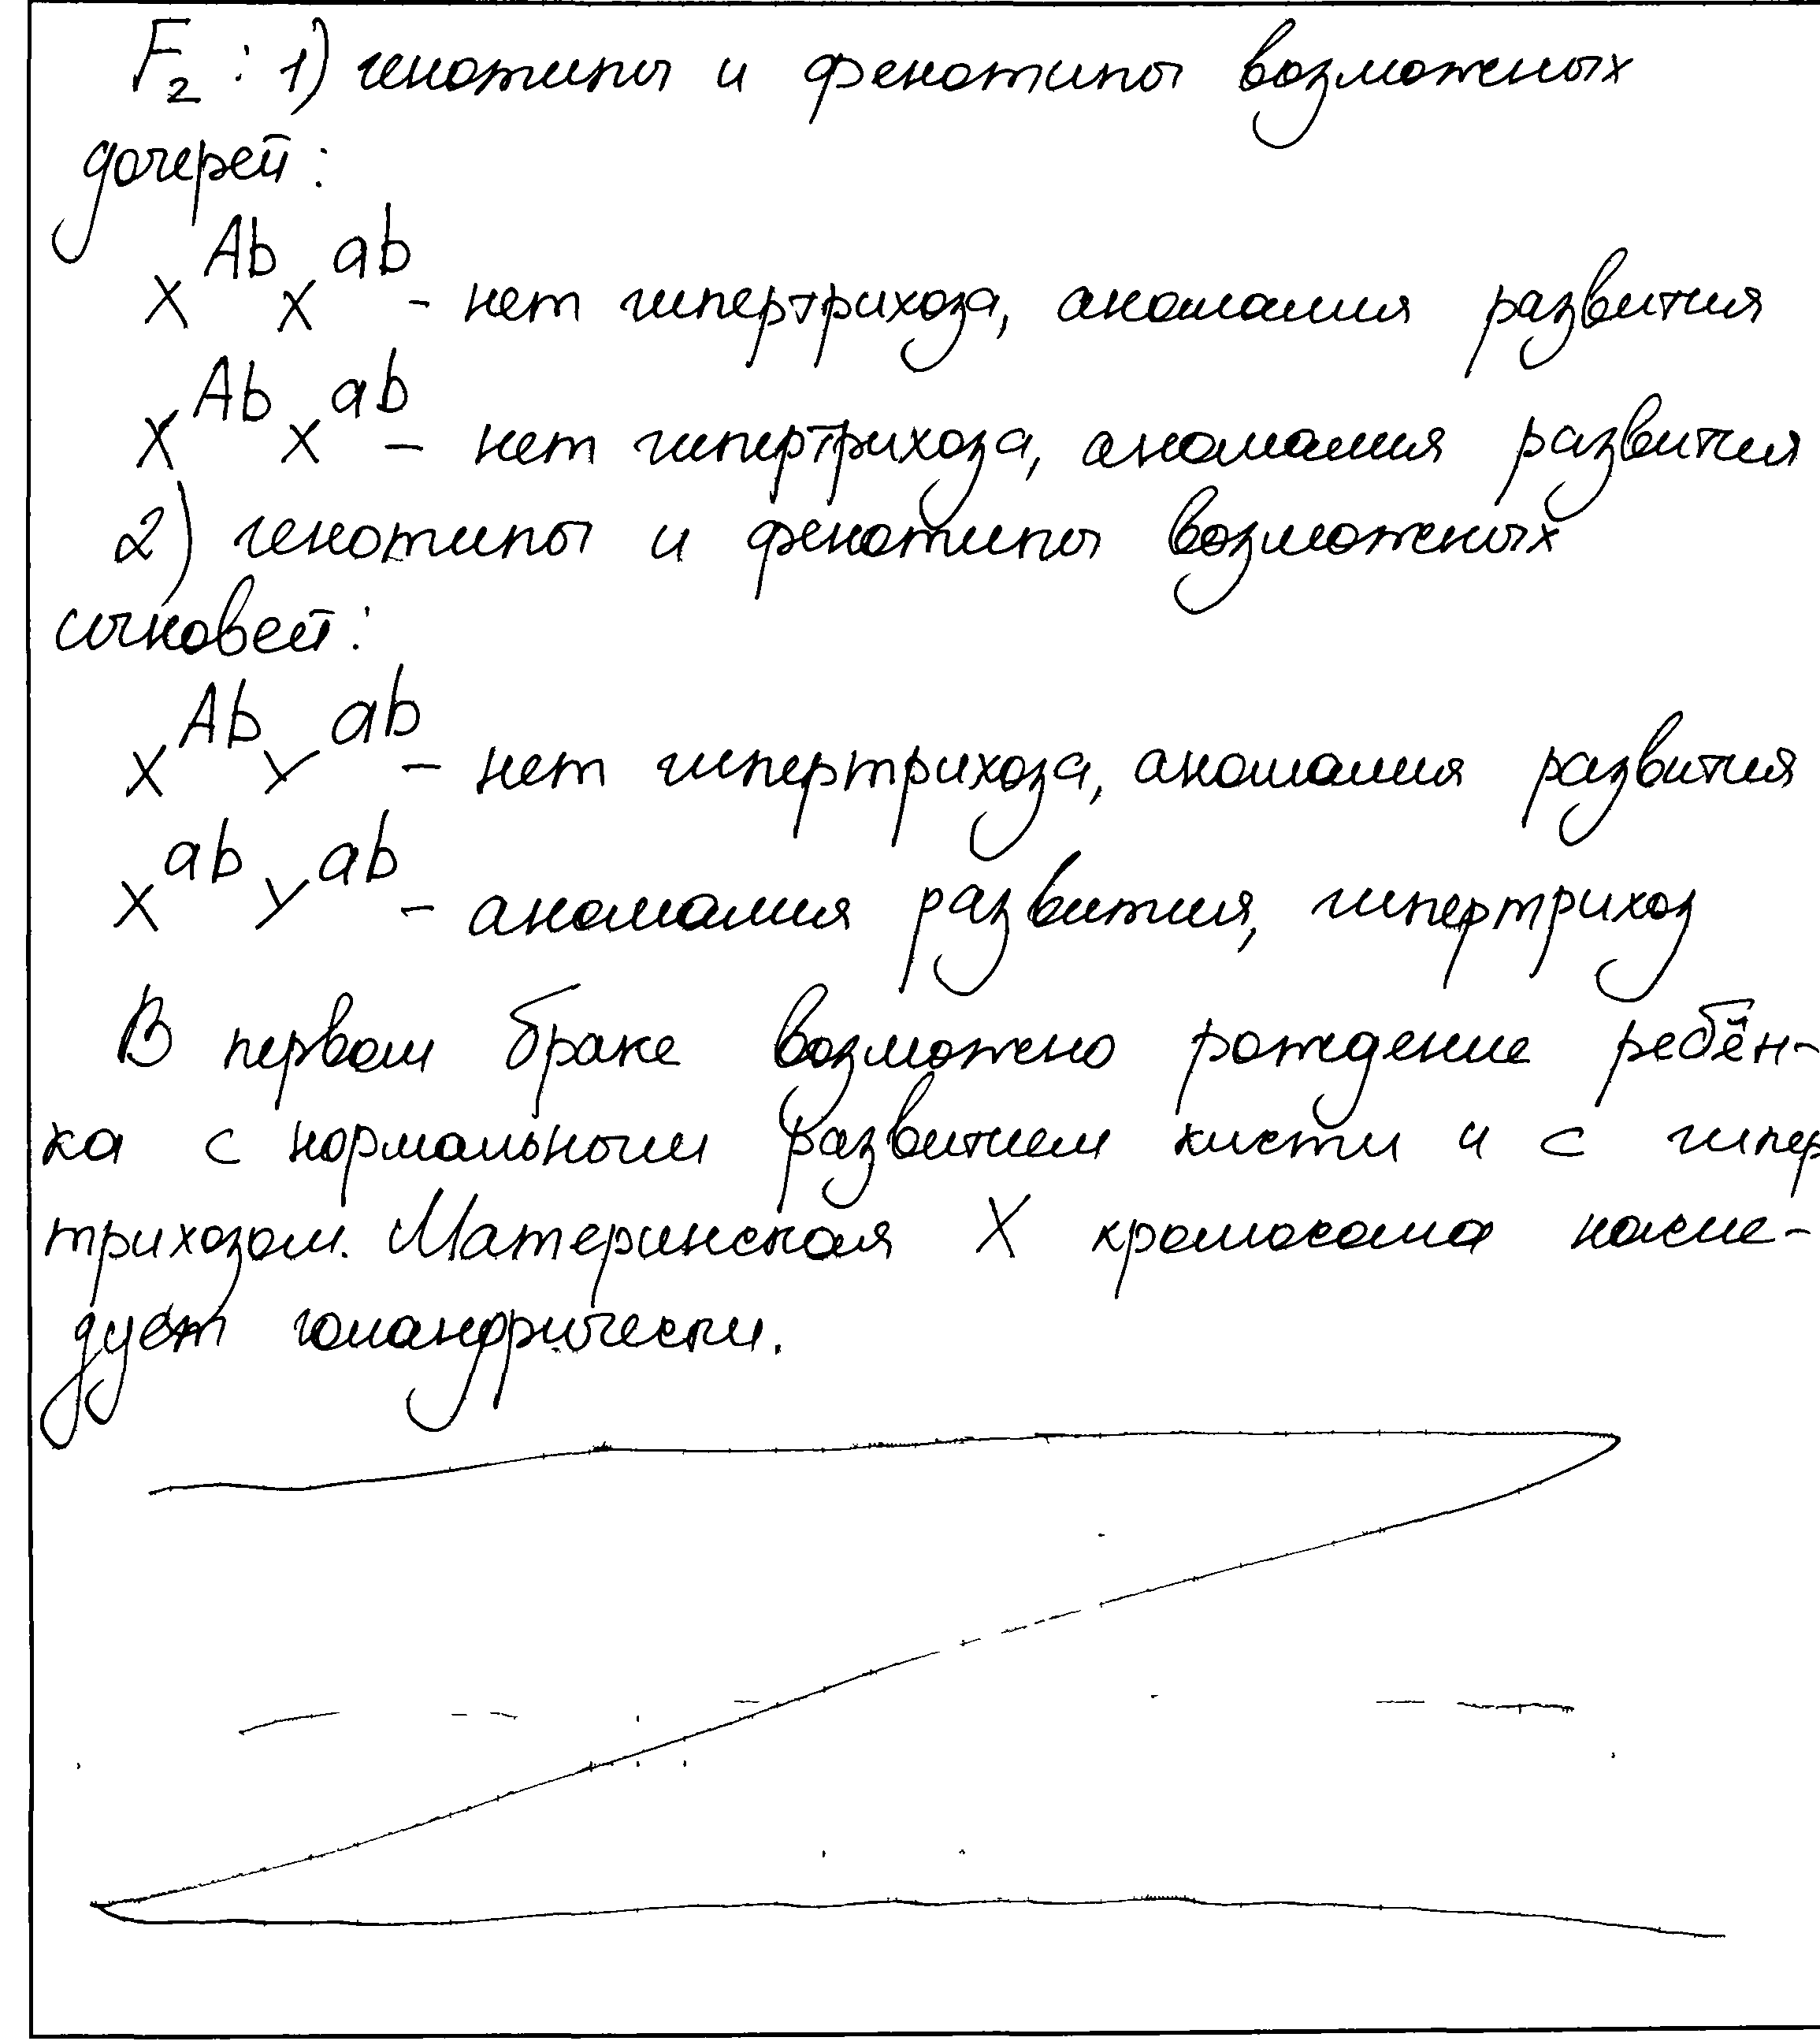 F₂: 1) генотипы и фенотипы возможных
дочерей:
X^Ab X^ab - нет гипертрихоза, аномалия развития
X^Ab X^ab - нет гипертрихоза, аномалия развития
2) генотипы и фенотипы возможных
сыновей:
X^Ab Y^ab - нет гипертрихоза, аномалия развития
X^ab Y^ab - аномалия развития, гипертрихоз
В первом браке возможно рождение ребён-
ка с нормальным развитием кисти и с гипер
трихозом. Материнская X хромосома насле-
дует голандрически.